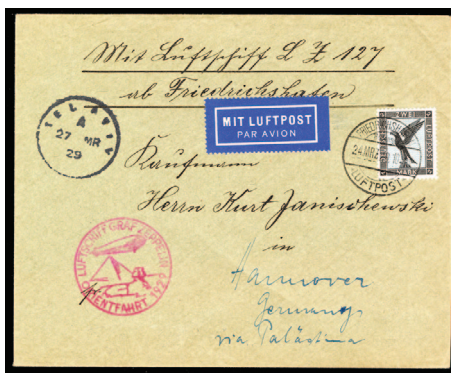 Mit Luftschiff L Z 127
ab Friedrichshafen
MIT LUFTPOST
PAR AVION
TEL AVIV
A
27 MR
29
FRIEDRICHSH
24 MRZ
LUFTPOST
ZWEI
MARK
Kaufmann
Herrn Kurt Janischewski
in
Hannover
Germany
via Palästina
LUFTSCHIFF GRAF ZEPPELIN
ORIENTFAHRT 1929